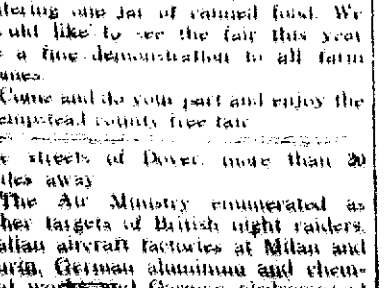 tering one jar of canned food. We
uld like to see the fair this year
a fine demonstration to all farm
Come and do your part and enjoy the
empstead county free fair
streets of Dover, more than 20
les away
The Air Ministry enumerated as
her targets of British night raiders,
alian aircraft factories at Milan and
urin, German aluminum and chem-
al works and German